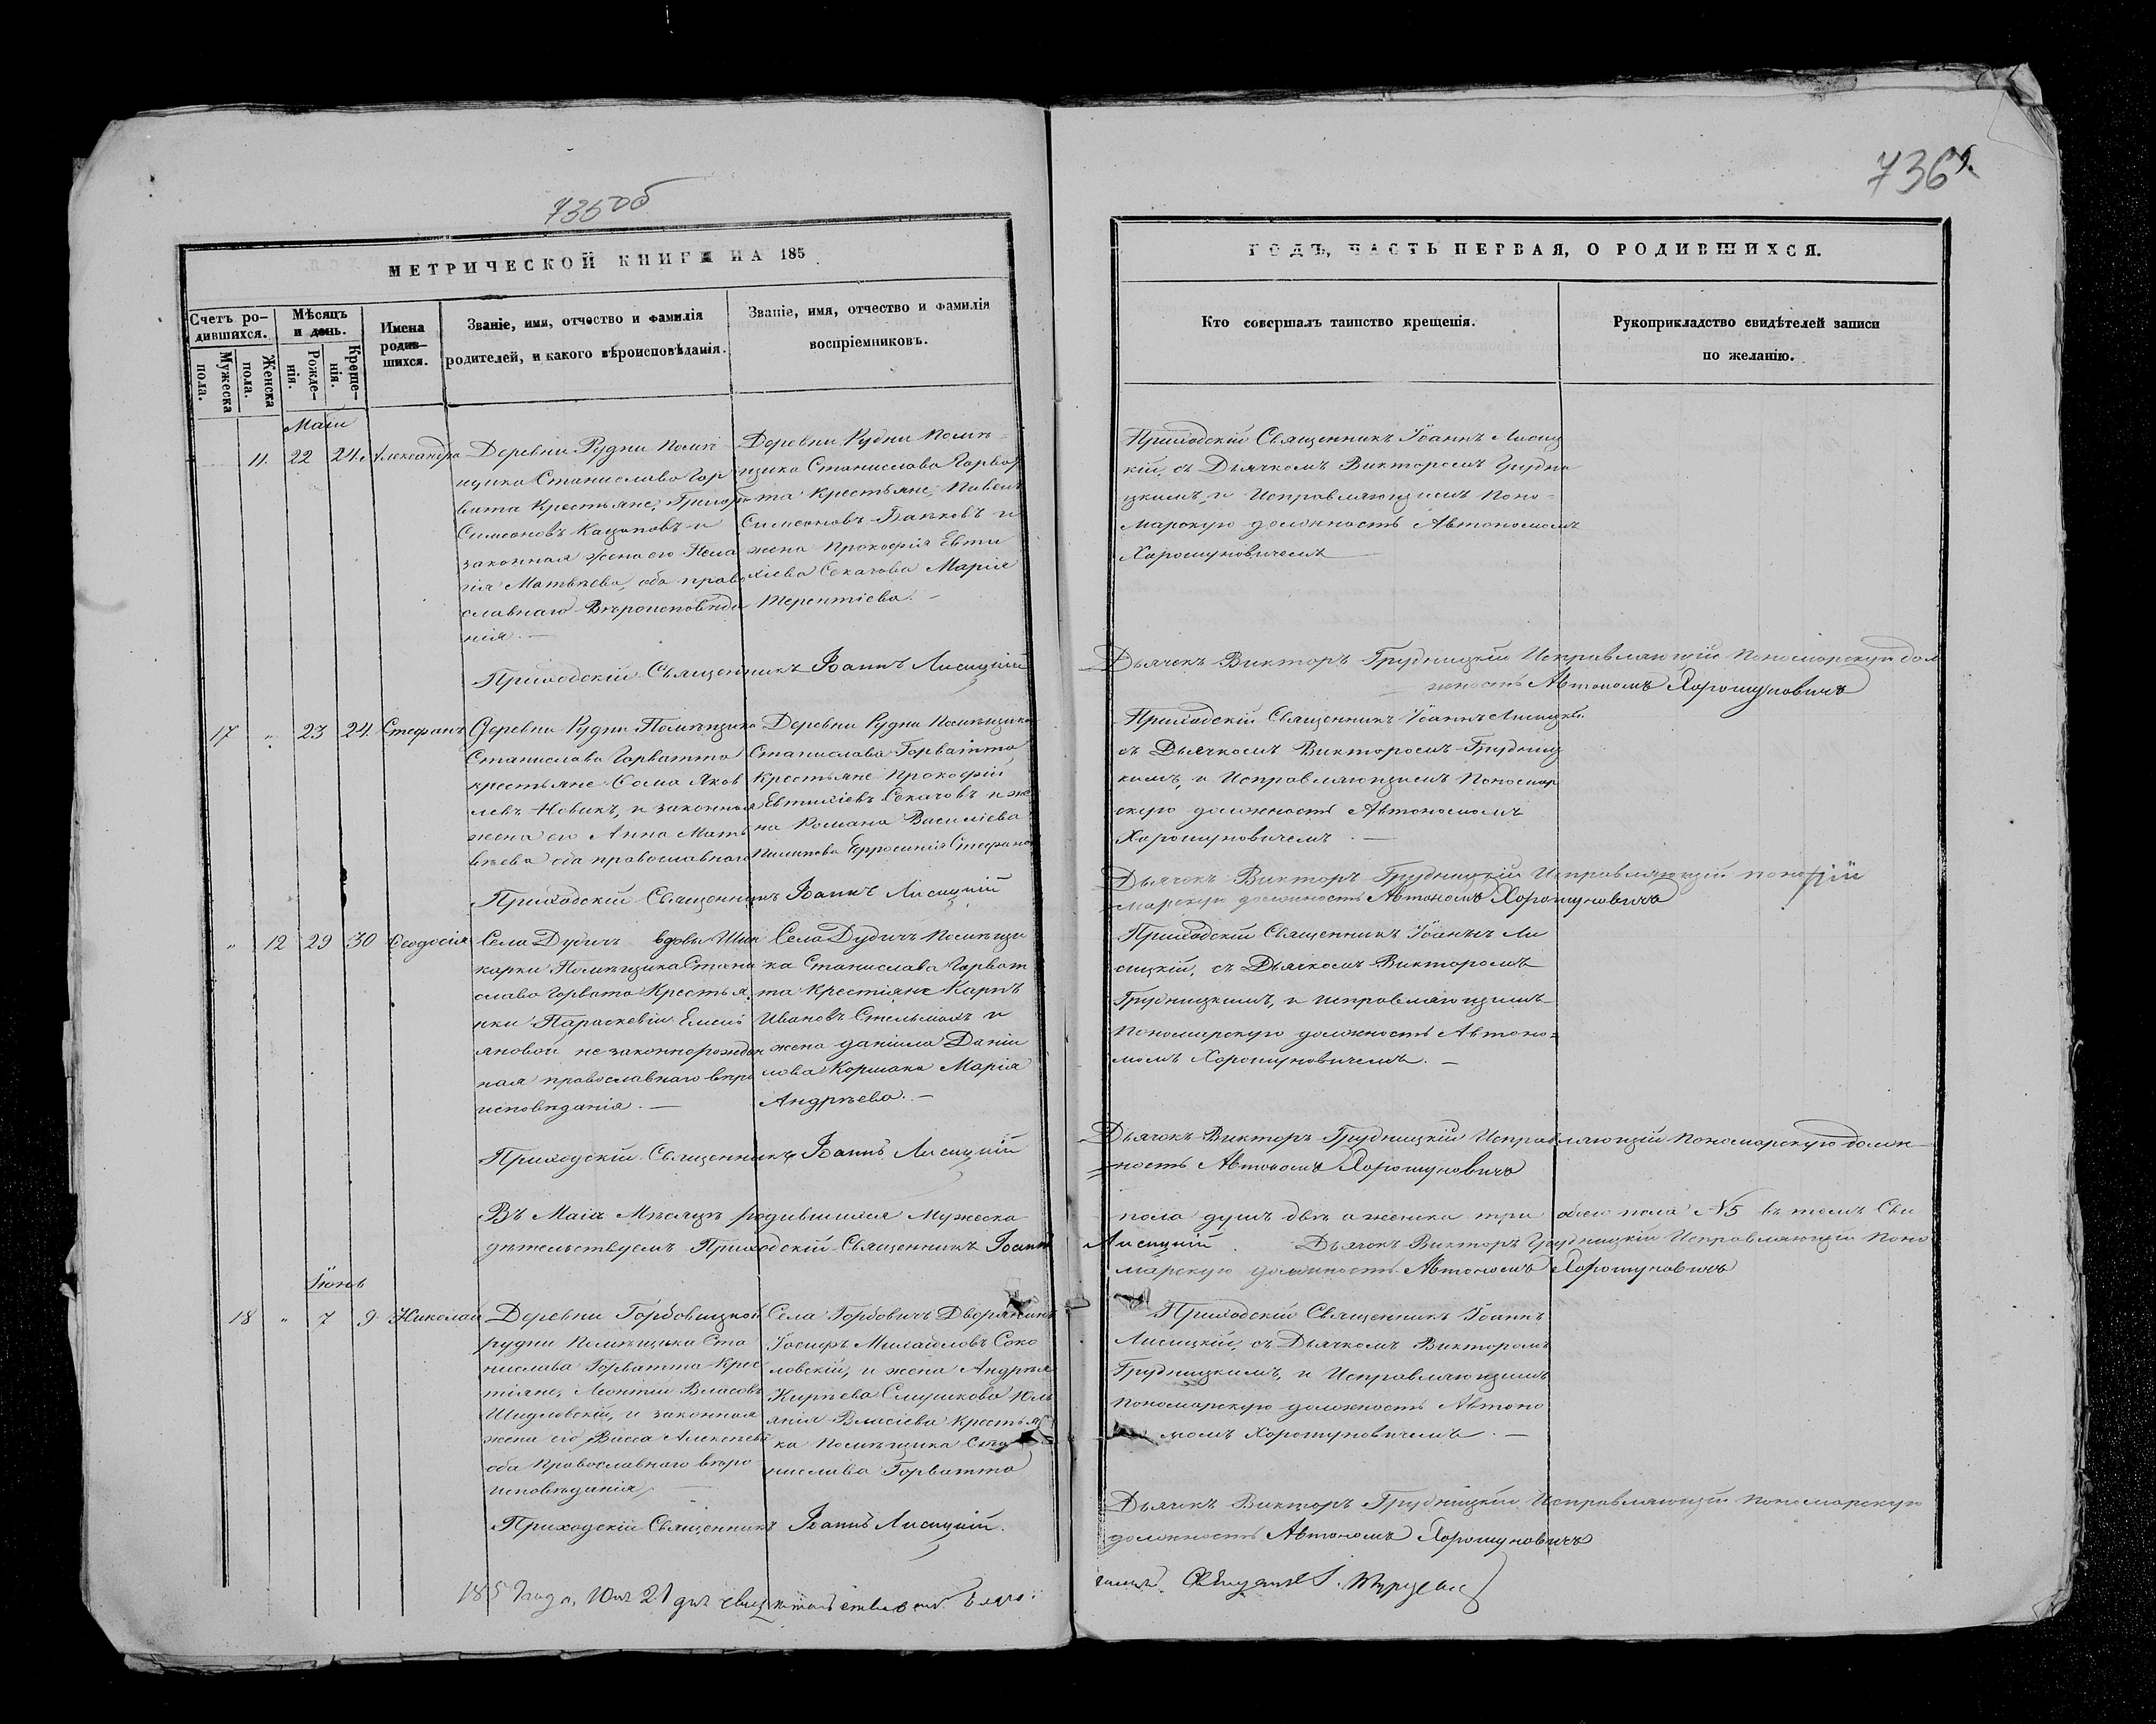 735об
736.
МЕТРИЧЕСКОЙ КНИГИ НА 185
Счетъ ро-
дившихся.
Мужеска
пола.
Женска
пола.
Мѣсяцъ
и день.
Рожде-
нія.
Креще-
нія.
Имена
родив-
шихся.
Званіе, имя, отчество и фамилія
родителей, и какого вѣроисповѣданія.
Званіе, имя, отчество и фамилія
воспріемниковъ.
Маіи
11. 22 24. Александра
Деревни Рудни Помѣ
щика Станислава Гор
вата Крестьяне, Григорій
Симеоновъ Кацаповъ и
законная жена его Пела
гія Матвѣева, оба право
славнаго Вѣроисповѣда
нія.
Деревни Рудни Помѣ-
щика Станислава Горват
та Крестьяне, Павелъ
Симеоновъ и
жена Прокофія Евти
хіева Секачова Марія
Терентіева.
Приходскій Священникъ Іоаннъ Лисицкій
17 „ 23 24. Стефанъ
Деревни Рудни Помѣщика
Станислава Горватта
крестьяне Сома Яков
левъ Новикъ, и законная
жена его Анна Мат
вѣева оба православнаго
Деревни Рудни Помѣщика
Станислава Горватта
Крестьяне Прокофій
Евтихіевъ Секачовъ и же
на Романа Василіева
Евфросинія Стефанова
Приходскій Священникъ Іоаннъ Лисицкій
„ 12 29 30 Ѳеодосія
Села Дудичъ вдовы Шин
карки Помѣщика Стани
слава Горвата Крестья
нки Параскевіи Емелі
яновой незаконнорожден
ная православнаго вѣро
исповѣданія.
Села Дудичъ Помѣщи
ка Станислава Горват
та Крестіяне Карпъ
Ивановъ Стельмахъ и
жена Даніила Даніи
лова Коршака Марія
Андрѣева.
Приходскій Священникъ Іоаннъ Лисицкій
Въ Маіѣ Мѣсяцѣ родившихся Мужеска
дѣтельствуемъ Приходскій Священникъ Іоаннъ
Іюнь
18 „ 7 9 Николай
Деревни Горбовицкой
рудни Помѣщика Ста
нислава Горватта Крес
тіяне, Леонтій Власовъ
Шидловскій, и законная
жена его Васса Алексѣева
оба Православнаго вѣро
исповѣданія,
Села Горбовичъ Дворянинъ
Іосифъ Михайловъ Соко
ловскій, и жена Андрѣя
Кирѣева Слушкова Юлі
анія Власіева крестьян
ка Помѣщика Ста
нислава Горватта
Приходскій Священникъ Іоаннъ Лисицкій.
185 года, Юля 21 дня свидѣтельствовалъ Благо-
ГОДЪ, ЧАСТЬ ПЕРВАЯ, О РОДИВШИХСЯ.
Кто совершалъ таинство крещенія.
Рукоприкладство свидѣтелей записи
по желанію.
Приходскій Священникъ Іоаннъ Лисиц
кій, съ Дьячкомъ Викторомъ Грудни
цкимъ, и Исправляющимъ Поно-
марскую должность Автономомъ
Хорошуновичемъ
Дьячокъ Викторъ Грудницкій Исправляющій Пономарскую дол
жность Автономъ Хорошуновичъ
Приходскій Священникъ Іоаннъ Лисицкій
съ Дьячкомъ Викторомъ Грудниц
кимъ, и Исправляющимъ Пономар
скую должность Автономомъ
Хорошуновичемъ.
Дьячокъ Викторъ Грудницкій Исправляющій поно
марскую должность Автономъ Хорошуновичъ
Приходскій Священникъ Іоаннъ Ли
сицкій, съ Дьячкомъ Викторомъ
Грудницкимъ, и исправляющимъ
Пономарскую должность Автоно-
момъ Хорошуновичемъ.
Дьячокъ Викторъ Грудницкій Исправляющій Пономарскую долж-
ность Автономъ Хорошуновичъ
пола душъ двѣ а женска три обоего пола №5 въ томъ Сви
Лисицкій. Дьячокъ Викторъ Грудницкій Исправляющій Поно
марскую должность Автономъ Хорошуновичъ
Приходскій Священникъ Іоаннъ
Лисицкій, съ Дьячкомъ Викторомъ
Грудницкимъ, и Исправляющимъ
Пономарскую должность Автоно
момъ Хорошуновичемъ.
Дьячокъ Викторъ Грудницкій Исправляющій пономарскую
должность Автономъ Хорошуновичъ